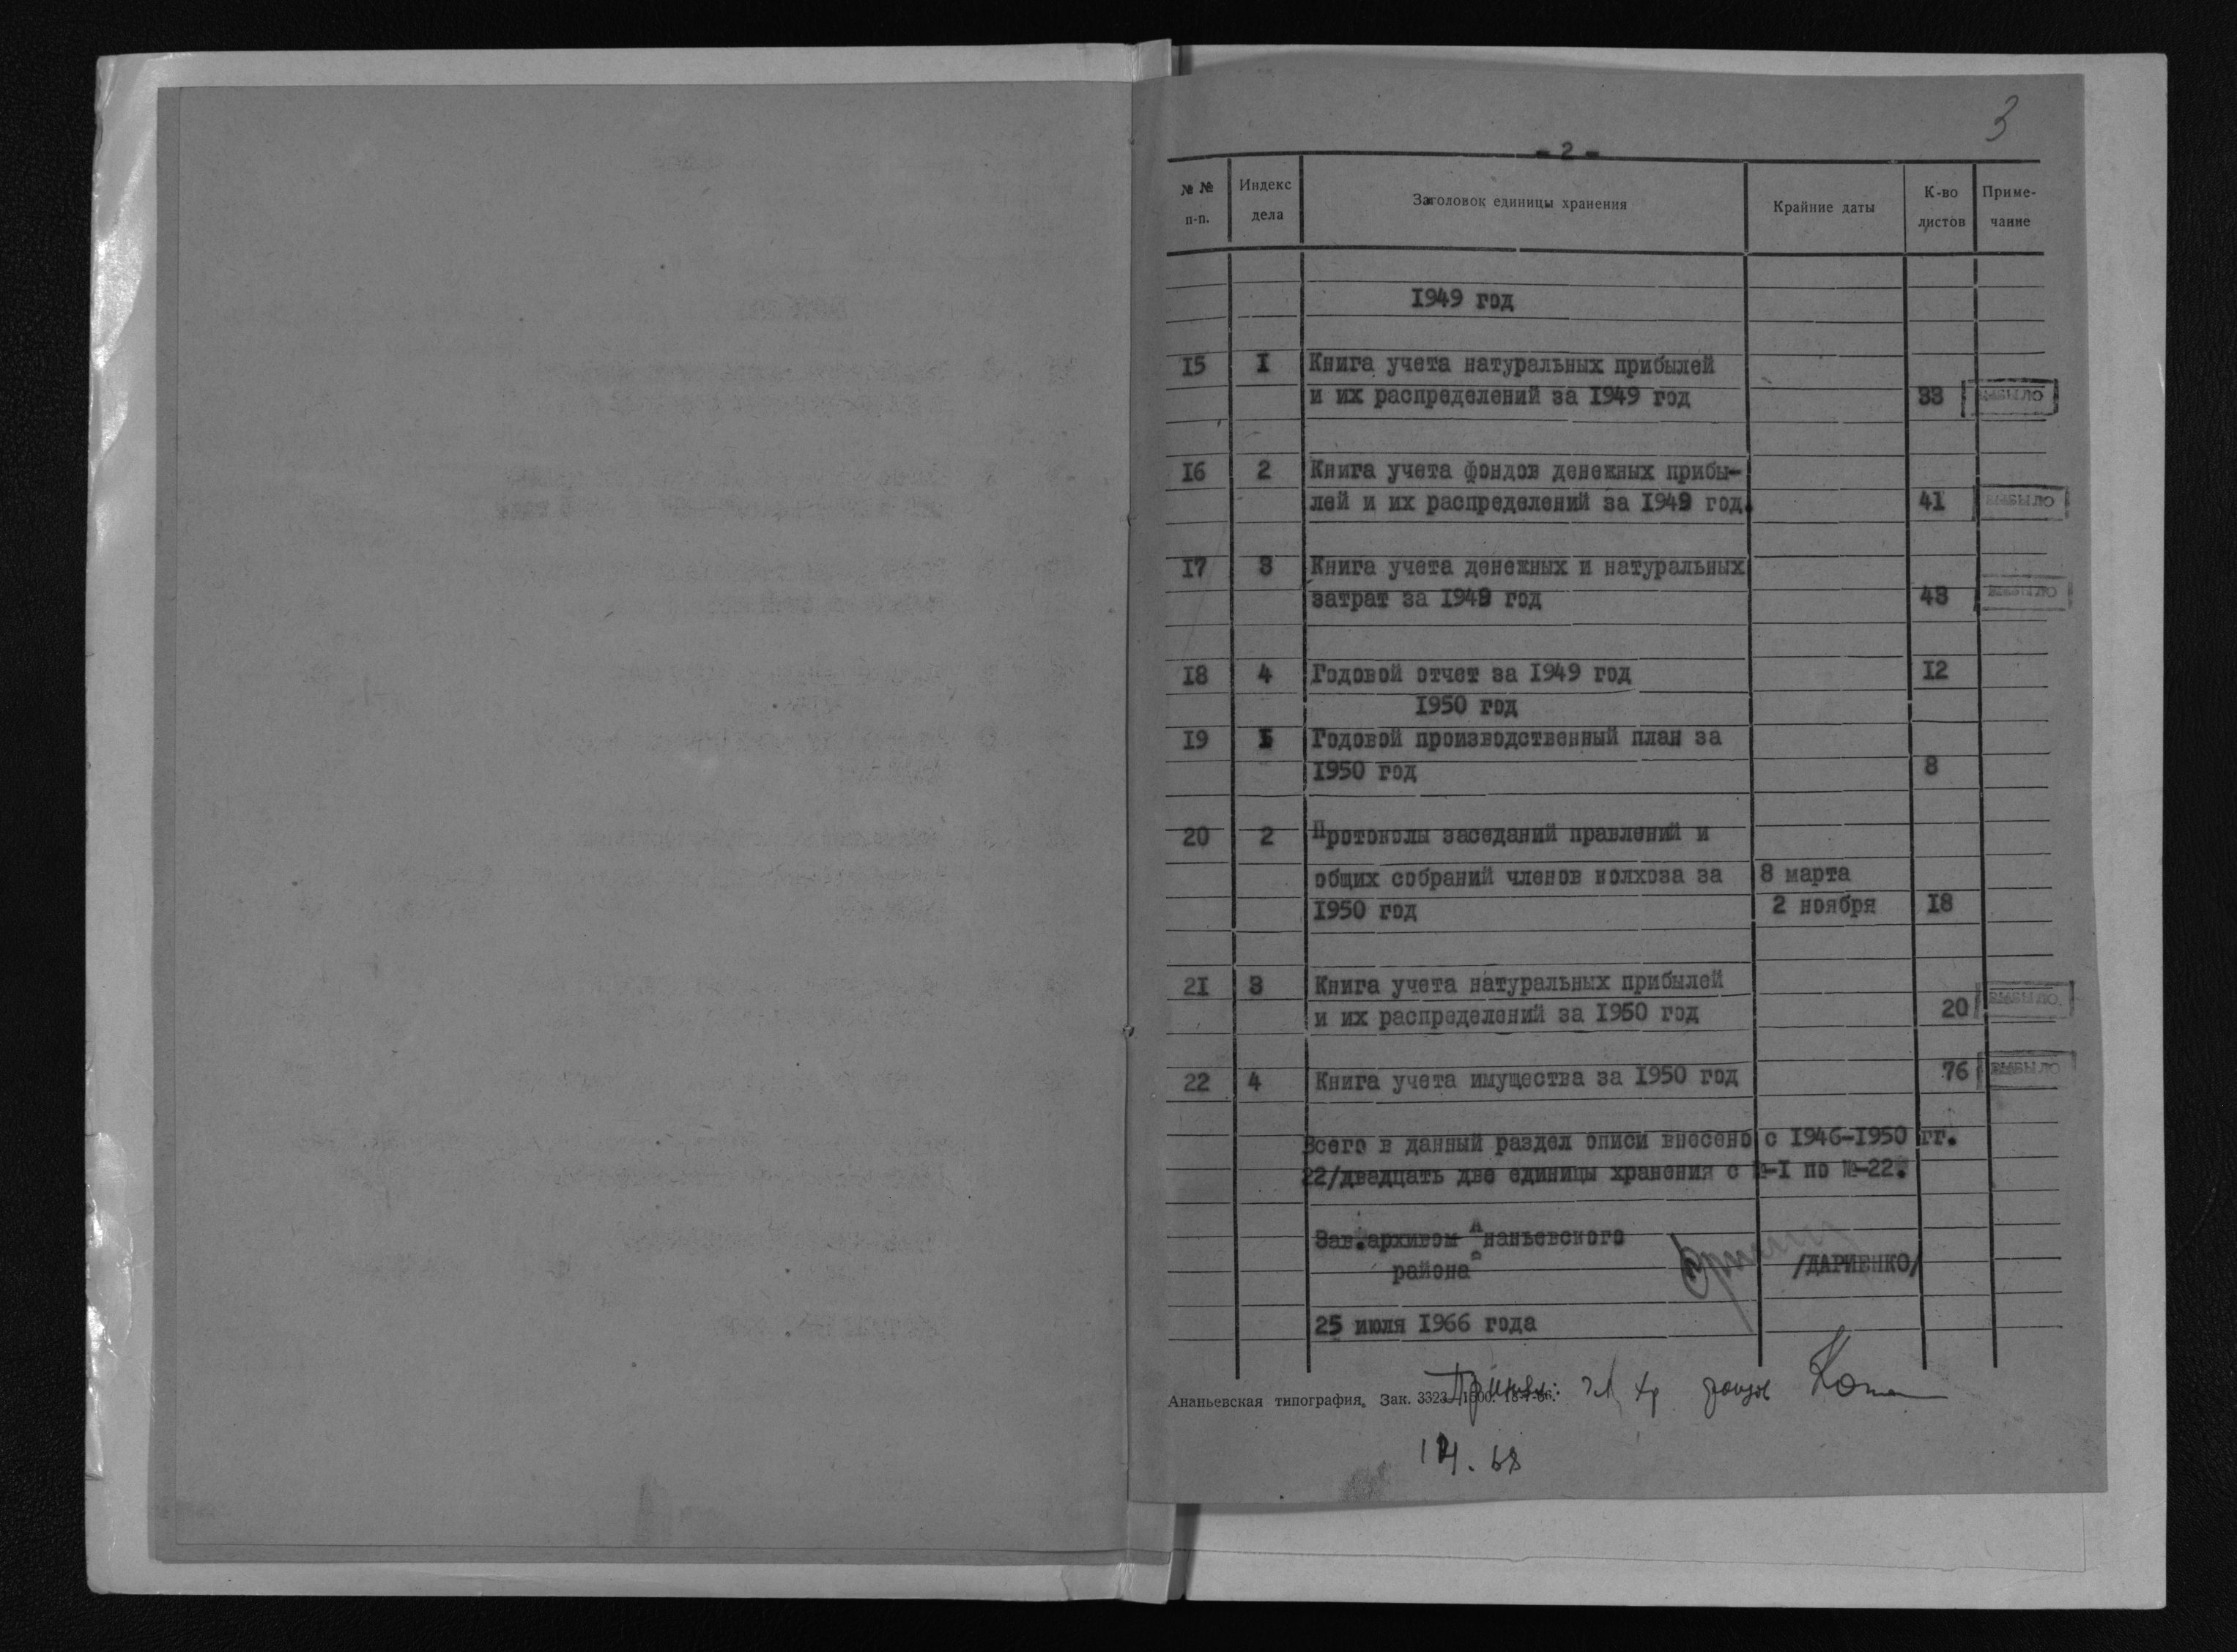 3
- 2 -
№ № п-п. Индекс дела Заголовок единицы хранения Крайние даты К-во листов Приме-чание
1949 год
15 1 Книга учета натуральных прибылей
и их распределений за 1949 год 33 ВЫБЫЛО
16 2 Книга учета фондов денежных прибы-
лей и их распределений за 1949 год. 41 ВЫБЫЛО
17 3 Книга учета денежных и натуральных
затрат за 1949 год 43 ВЫБЫЛО
18 4 Годовой отчет за 1949 год 12
1950 год
19 1 Годовой производственный план за
1950 год 8
20 2 Протоколы заседаний правлений и
общих собраний членов колхоза за 8 марта
1950 год 2 ноября 18
21 3 Книга учета натуральных прибылей
и их распределений за 1950 год 20 ВЫБЫЛО
22 4 Книга учета имущества за 1950 год 76 ВЫБЫЛО
Всего в данный раздел описи внесено с 1946-1950 гг.
22/двадцать две единицы хранения с №-1 по №-22.
Зав.архивом Ананьевского
района /ДАРИЕНКО/
25 июля 1966 года
Ананьевская типография. Зак. 3323